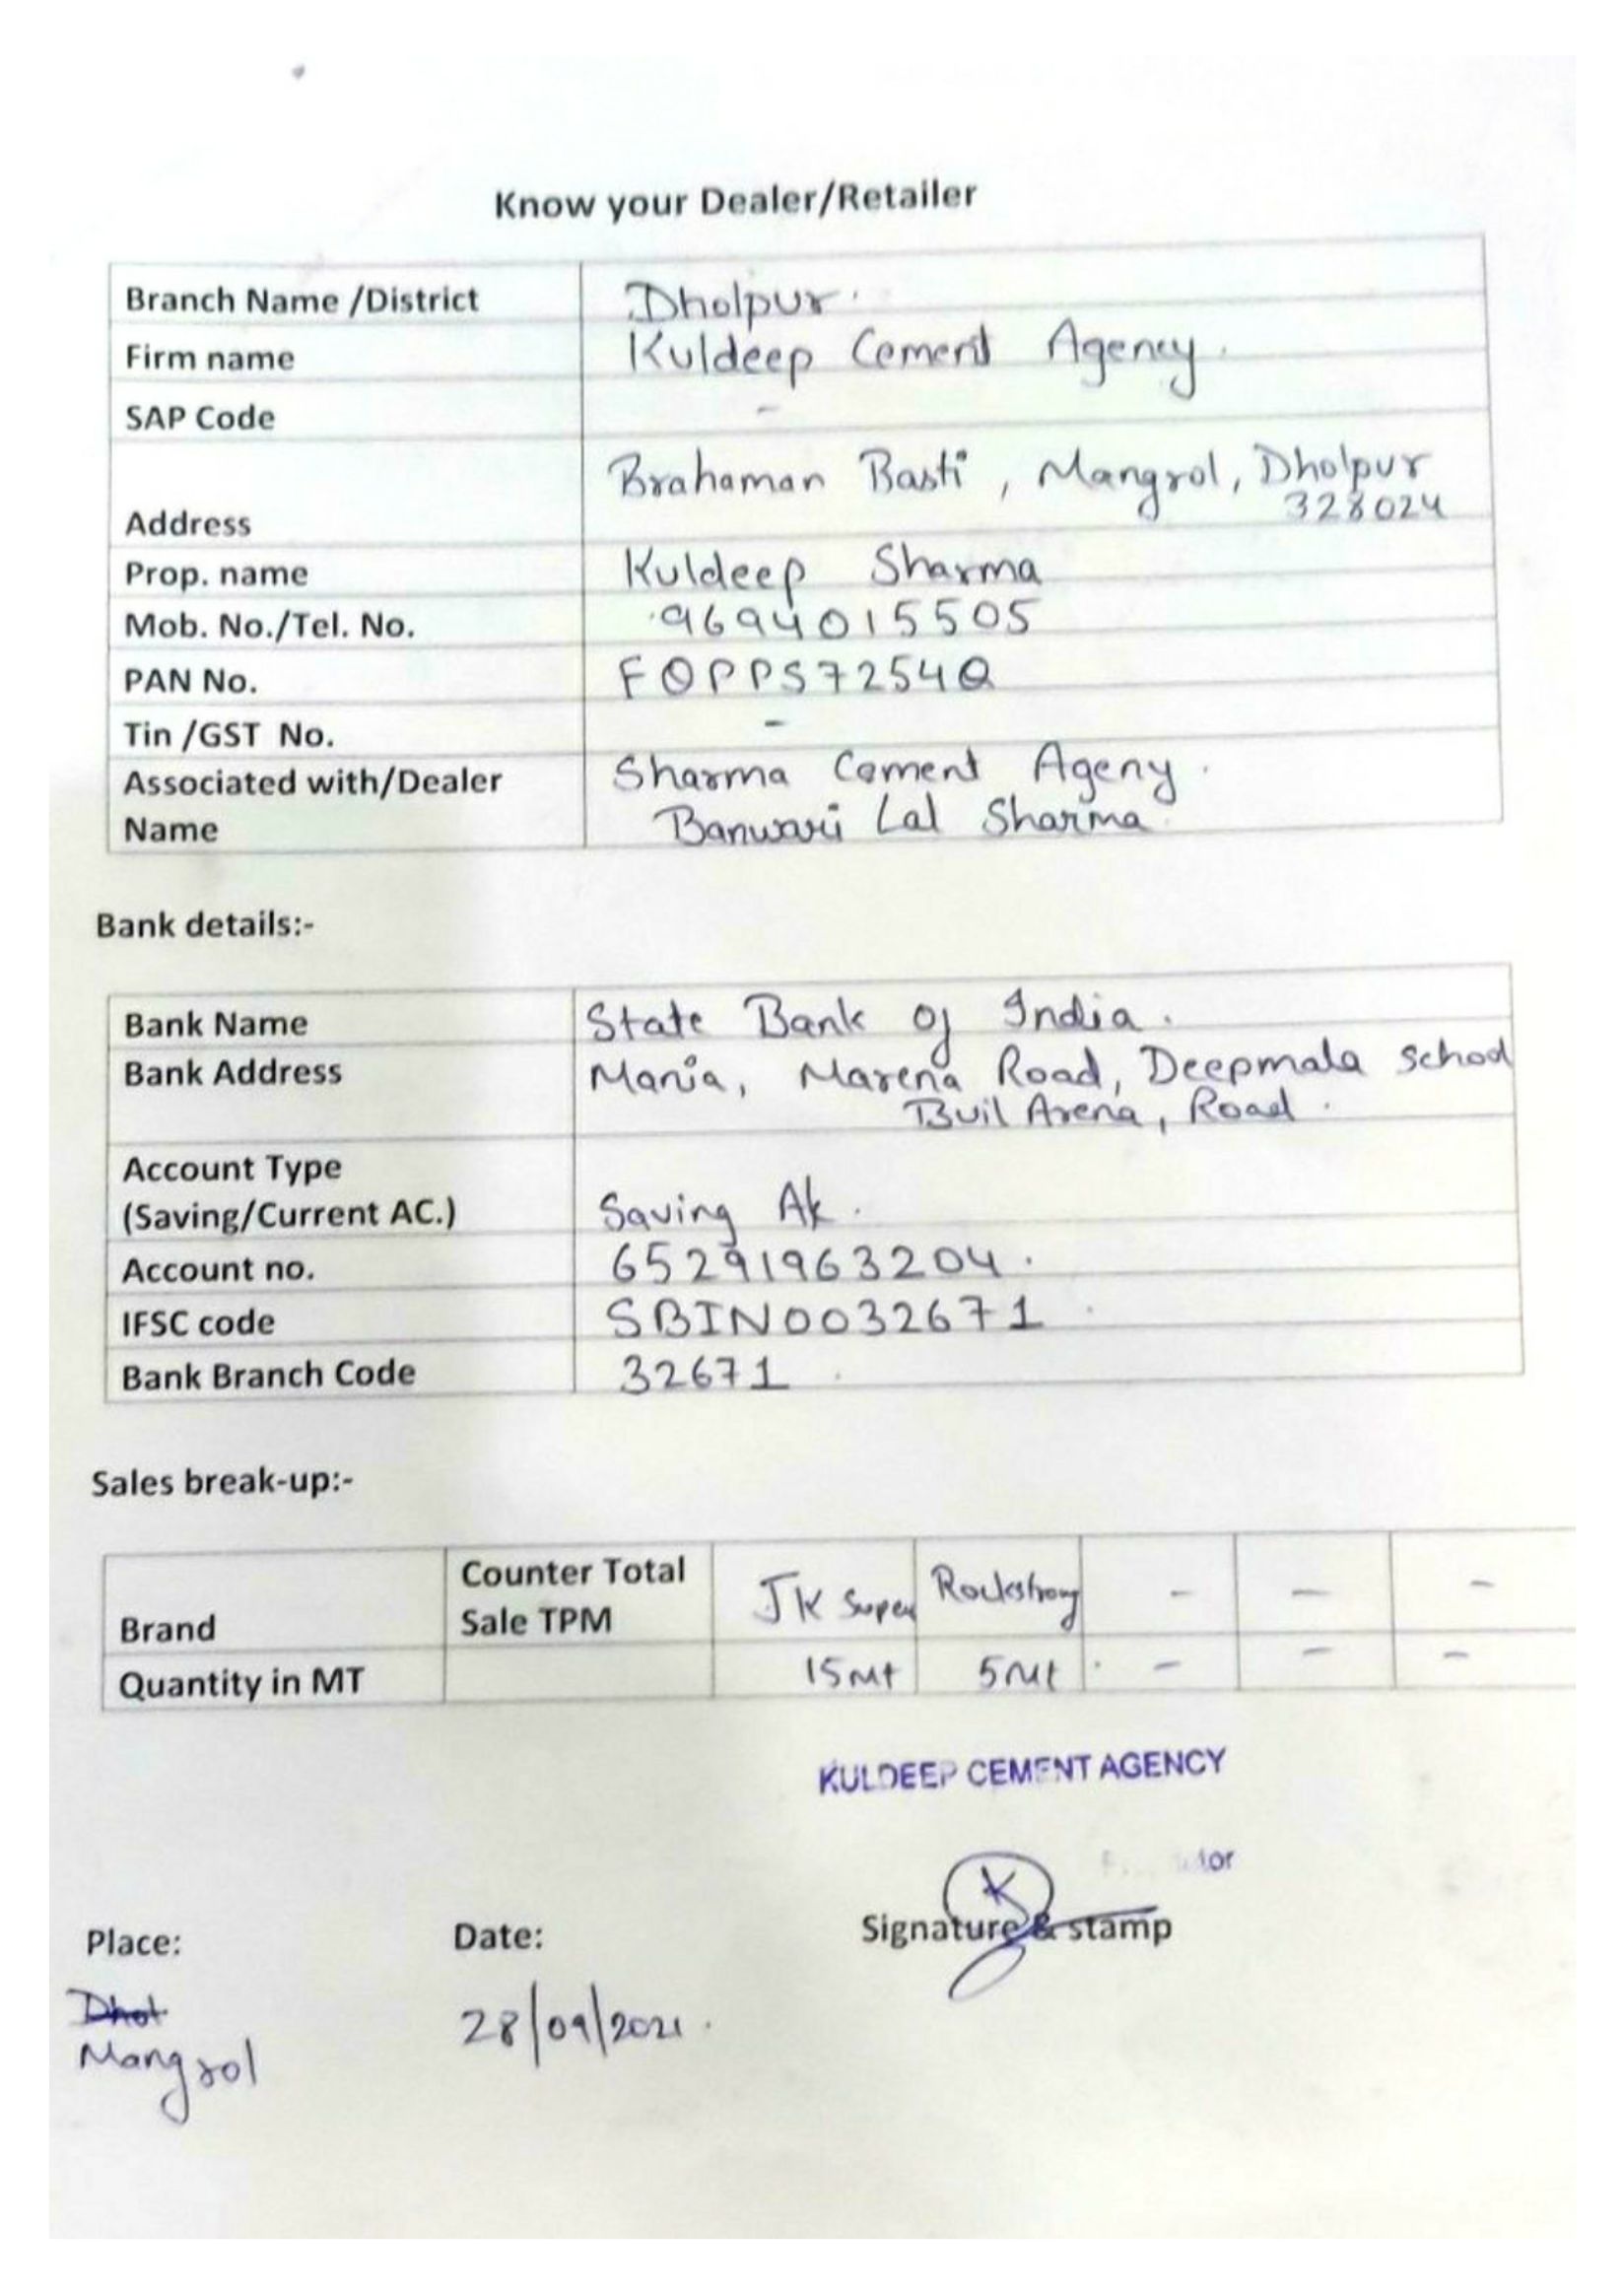 Know your Dealer/Retailer
Branch Name /District Dholpur.
Firm name Kuldeep Cement Agency.
SAP Code -
Brahaman Basti, Mangrol, Dholpur
Address 328024
Prop. name Kuldeep Sharma
Mob. No./Tel. No. 9694015505
PAN No. FOPPS7254Q
Tin /GST No. -
Associated with/Dealer Sharma Cement Ageny.
Name Banwari Lal Sharma
Bank details:-
Bank Name State Bank of India.
Bank Address Mania, Marena Road, Deepmala School
Buil Arena, Road.
Account Type
(Saving/Current AC.) Saving Ak.
Account no. 65291963204.
IFSC code SBIN0032671
Bank Branch Code 32671
Sales break-up:-
Counter Total
Brand Sale TPM JK Super Rockstrong - - -
Quantity in MT 15Mt 5Mt - - -
KULDEEP CEMENT AGENCY
Signature & stamp
Place: Date:
Dhol
Mangrol 28/09/2021.